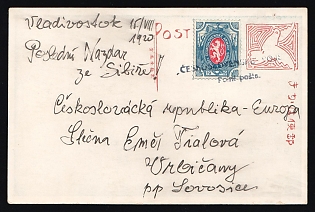 Vladivostok 15/VIII
1920
POST
Poslední Nazdar
ze Sibiře!
Polní pošta.
Československá republika - Europa
Slečna Emět Fialová
Vrbičany
pp Lovosice